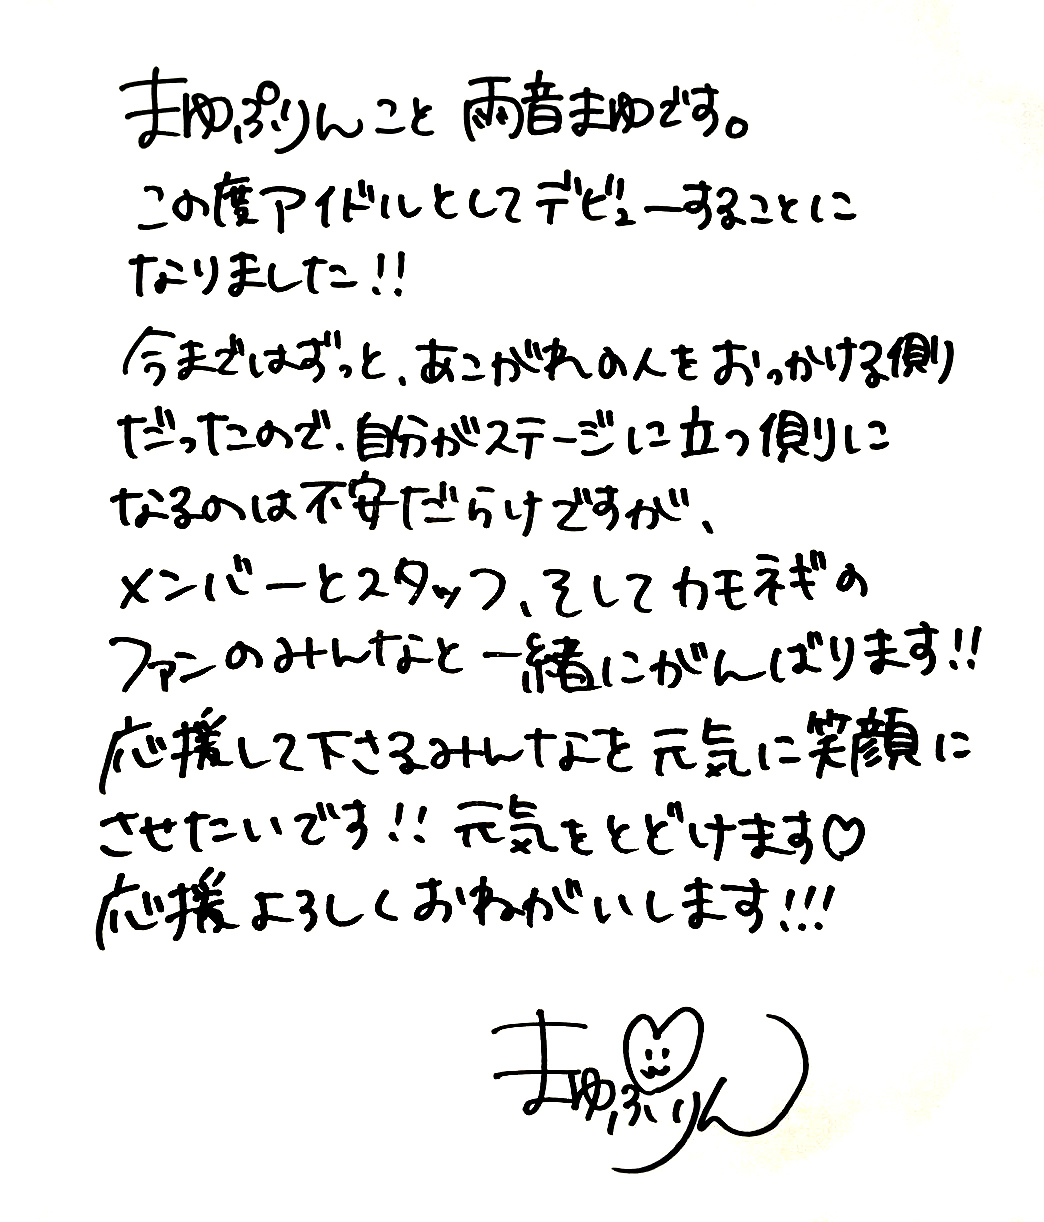 まゆぷりんこと 雨音まゆです。
この度アイドルとしてデビューすることに
なりました!!
今まではずっと、あこがれの人をおっかける側り
だったので、自分がステージに立つ側りに
なるのは不安だらけですが、
メンバーとスタッフ、そしてカモネギの
ファンのみんなと一緒にがんばります!!
応援して下さるみんなを元気に笑顔に
させたいです!! 元気をとどけます♡
応援よろしくおねがいします!!!
まゆぷりん